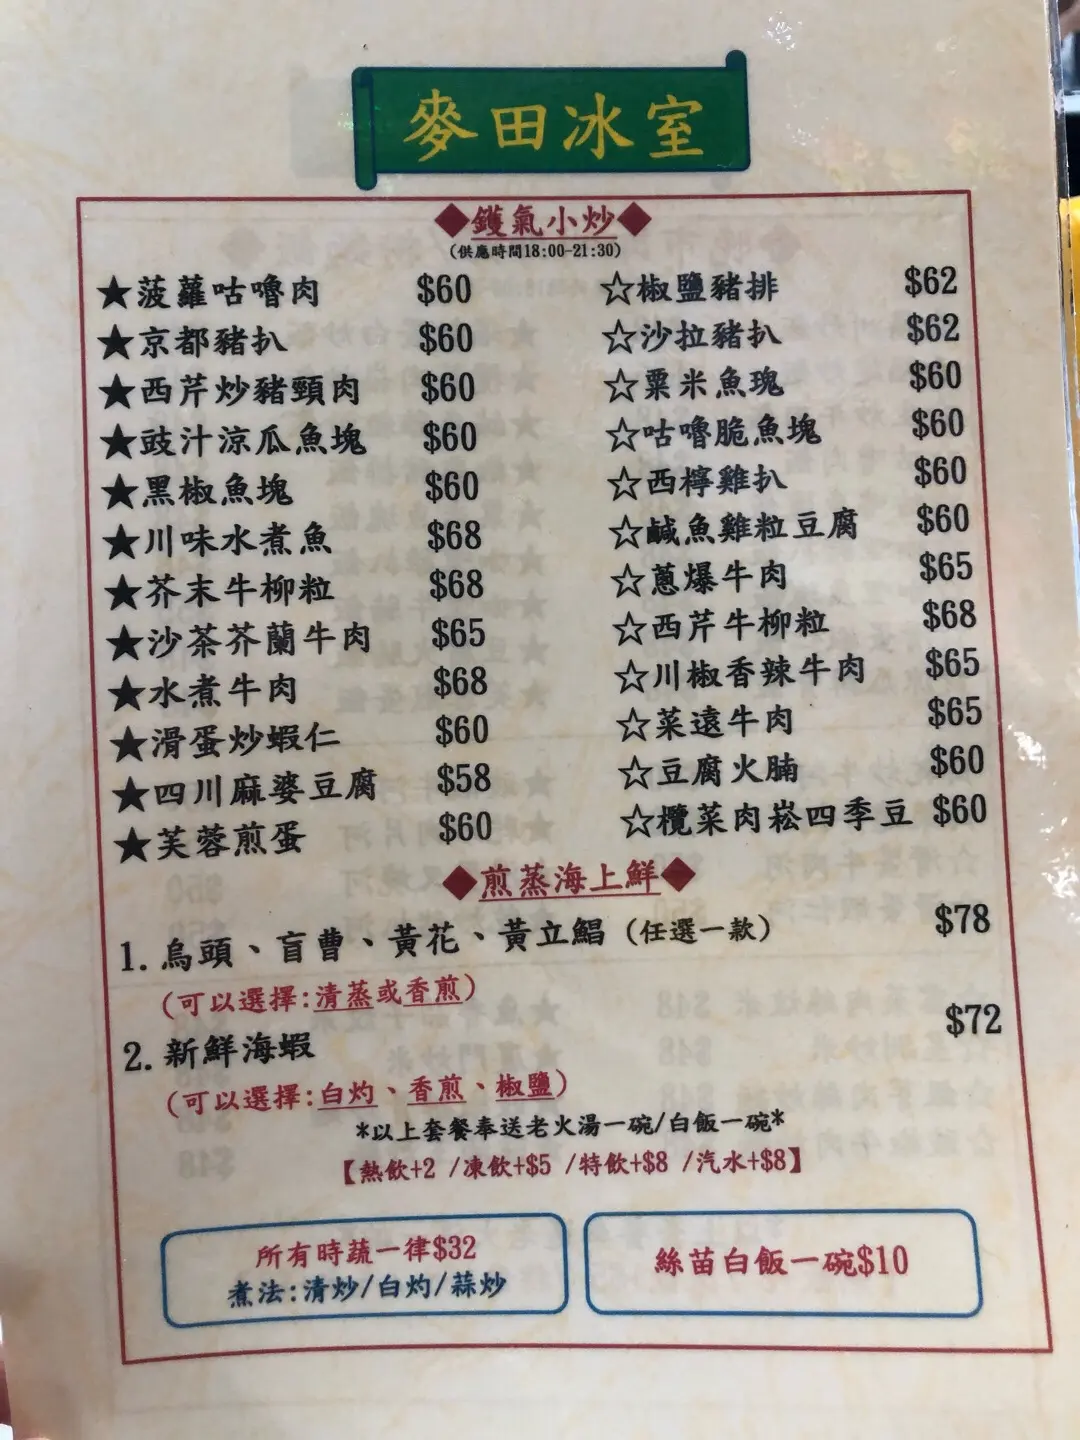 麥田冰室
◆鑊氣小炒◆
(供應時間18:00-21:30)
★菠蘿咕嚕肉 $60
★京都豬扒 $60
★西芹炒豬頸肉 $60
★豉汁涼瓜魚塊 $60
★黑椒魚塊 $60
★川味水煮魚 $68
★芥末牛柳粒 $68
★沙茶芥蘭牛肉 $65
★水煮牛肉 $68
★滑蛋炒蝦仁 $60
★四川麻婆豆腐 $58
★芙蓉煎蛋 $60
☆椒鹽豬排 $62
☆沙拉豬扒 $62
☆粟米魚瑰 $60
☆咕嚕脆魚塊 $60
☆西檸雞扒 $60
☆鹹魚雞粒豆腐 $60
☆蔥爆牛肉 $65
☆西芹牛柳粒 $68
☆川椒香辣牛肉 $65
☆菜遠牛肉 $65
☆豆腐火腩 $60
☆欖菜肉崧四季豆 $60
◆煎蒸海上鮮◆
1. 烏頭、盲曹、黃花、黃立鯧 (任選一款) $78
(可以選擇:清蒸或香煎)
2. 新鮮海蝦 $72
(可以選擇:白灼、香煎、椒鹽)
*以上套餐奉送老火湯一碗/白飯一碗*
【熱飲+2 /凍飲+$5 /特飲+$8 /汽水+$8】
所有時蔬一律$32
煮法:清炒/白灼/蒜炒
絲苗白飯一碗$10